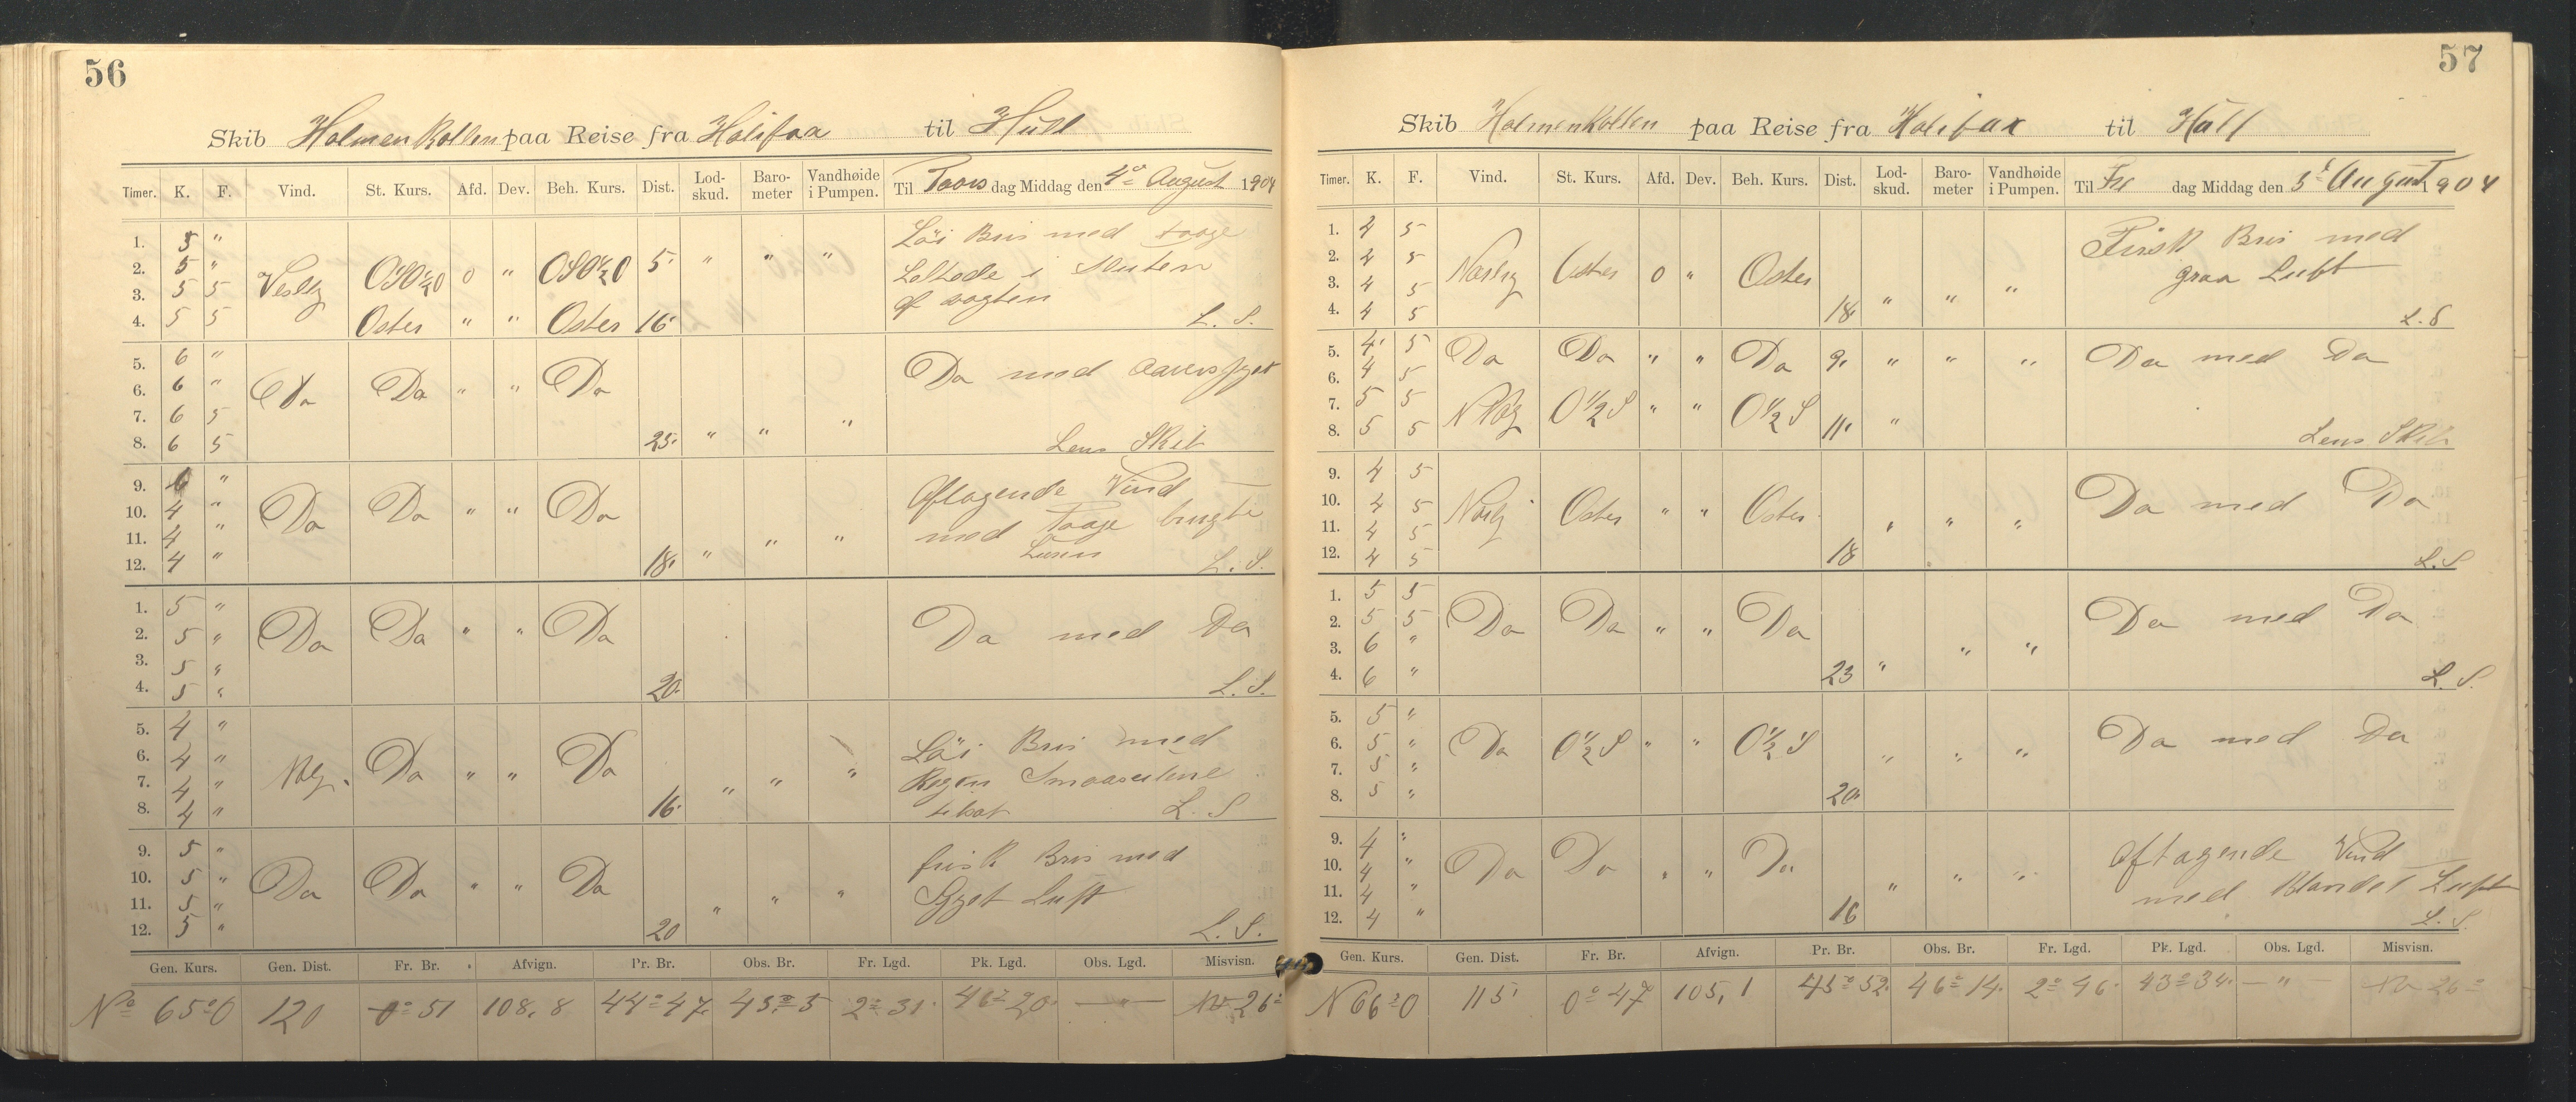 56
Skib Holmenkollen paa Reise fra Halifax til Hull
Timer. K. F. Vind. St. Kurs. Afd. Dev. Beh. Kurs. Dist. Lod-skud. Baro-meter Vandhøide i Pumpen. Til Tors dag Middag den 4de August 1904
1. 5 " Löi Bris med taage
2. 5 " Vestlig OSO½O 0 " OSO½O 5 " " " Lettede i Slutten
3. 5 5 af vagten
4. 5 5 Oster " " Oster 16 L. S.
5. 6 "
6. 6 " Do Do " " Do Do med
7. 6 5
8. 6 5 25 " " " Lens Skib
9. 6 " Aftagende Vind
10. 4 " Do Do " " Do med Taage brugte
11. 4 " Luren
12. 4 " 18 " " " L. S.
1. 5 "
2. 5 " Do Do " " Do Do med Do
3. 5 "
4. 5 " 20 L. S.
5. 4 " Löi Bris med
6. 4 " Do " " Do Regn Smaaseilene
7. 4 "
8. 4 " 16 " " " L. S
9. 5 " frisk Bris med
10. 5 " Do Do " " Do Luft
11. 5 "
12. 5 " 20 " " " L. S.
Gen. Kurs. Gen. Dist. Fr. Br. Afvign. Pr. Br. Obs. Br. Fr. Lgd. Pk. Lgd. Obs. Lgd. Misvisn.
N 65° O 120 0° 51 108,8 44° 47 45° 5 2° 31 46° 20 — " — 26°
57
Skib Holmenkollen paa Reise fra Halifax til Hull
Timer. K. F. Vind. St. Kurs. Afd. Dev. Beh. Kurs. Dist. Lod-skud. Baro-meter Vandhøide i Pumpen. Til Fre dag Middag den 5te August 1904
1. 4 5 Frisk Bris med
2. 4 5 Oster 0 " Oster graa Luft
3. 4 5
4. 4 5 18 " " " L. S
5. 4 5 Do Do " " Do 9 " " " Do med Do
6. 4 5
7. 5 5 O½S " " O½S
8. 5 5 11 " Lens Skib
9. 4 5
10. 4 5 Oster " " Oster Do med Do
11. 4 5
12. 4 5 18 " " " L. S
1. 5 5
2. 5 5 Do Do " " Do Do med Do
3. 6 "
4. 6 " 23 " " " L. S.
5. 5 "
6. 5 " Do O½S " " O½S " " " Do med Do
7. 5 "
8. 5 " 20
9. 4 " Aftagende Vind
10. 4 " Do Do " " Do med Blandet Luft
11. 4 "
12. 4 " 16 " " " L. S.
Gen. Kurs. Gen. Dist. Fr. Br. Afvign. Pr. Br. Obs. Br. Fr. Lgd. Pk. Lgd. Obs. Lgd. Misvisn.
N 66° O 115 0° 47 105,1 45° 52 46° 14 2° 46 43° 34 — " — 26°